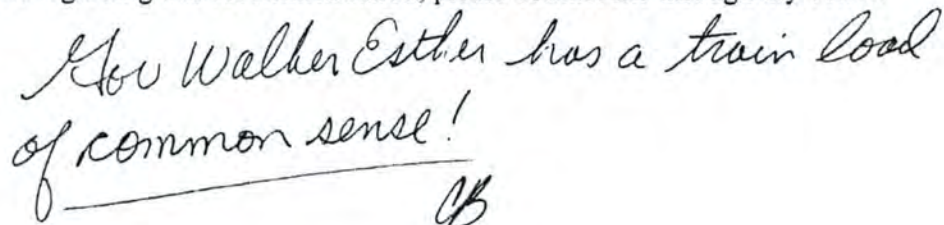 Gov Walker Esther has a train load
of common sense!
CB